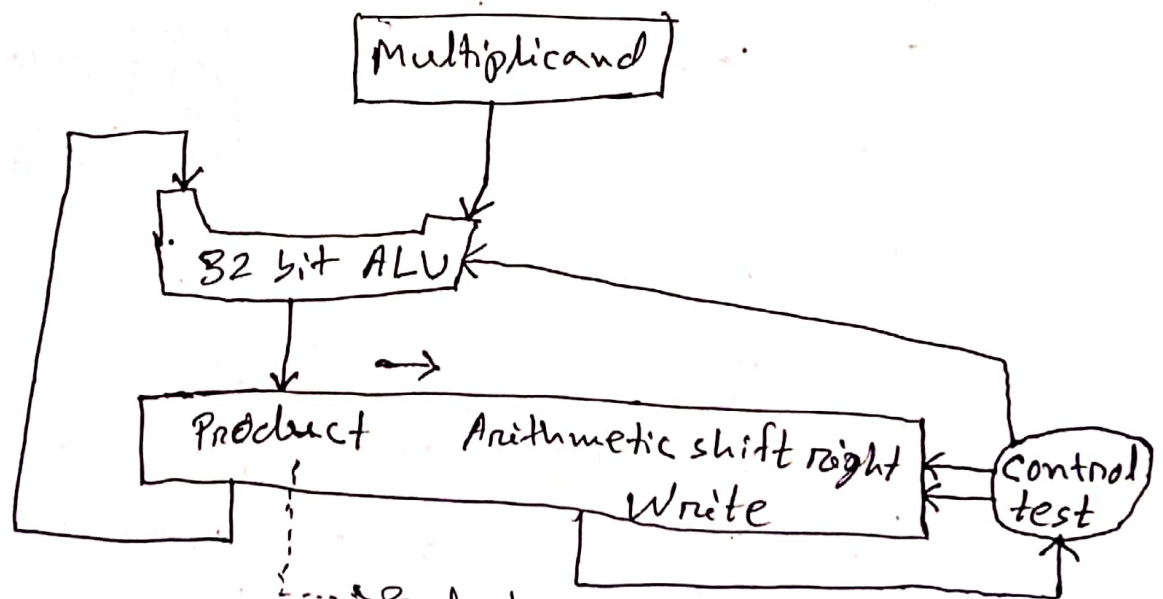 Multiplicand
32 bit ALU
Product Arithmetic shift right
Write
control
test